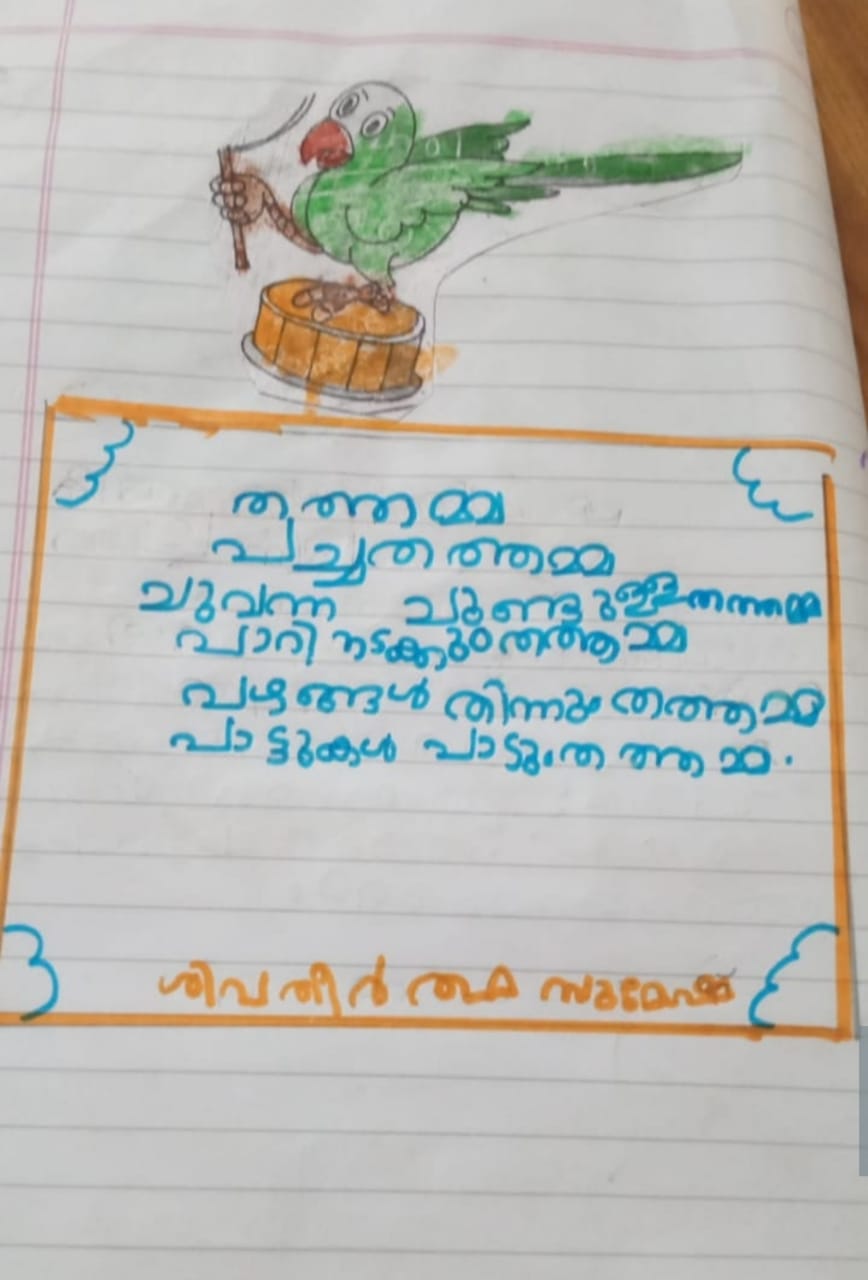 തത്തമ്മ
പച്ചതത്തമ്മ
ചുവന്ന ചുണ്ടുള്ളതത്തമ്മ
പാറി നടക്കുംതത്തമ്മ
പഴങ്ങൾ തിന്നും തത്തമ്മ
പാട്ടുകൾ പാടുംതത്തമ്മ.
ശിവതീർത്ഥ സുമേഷ്